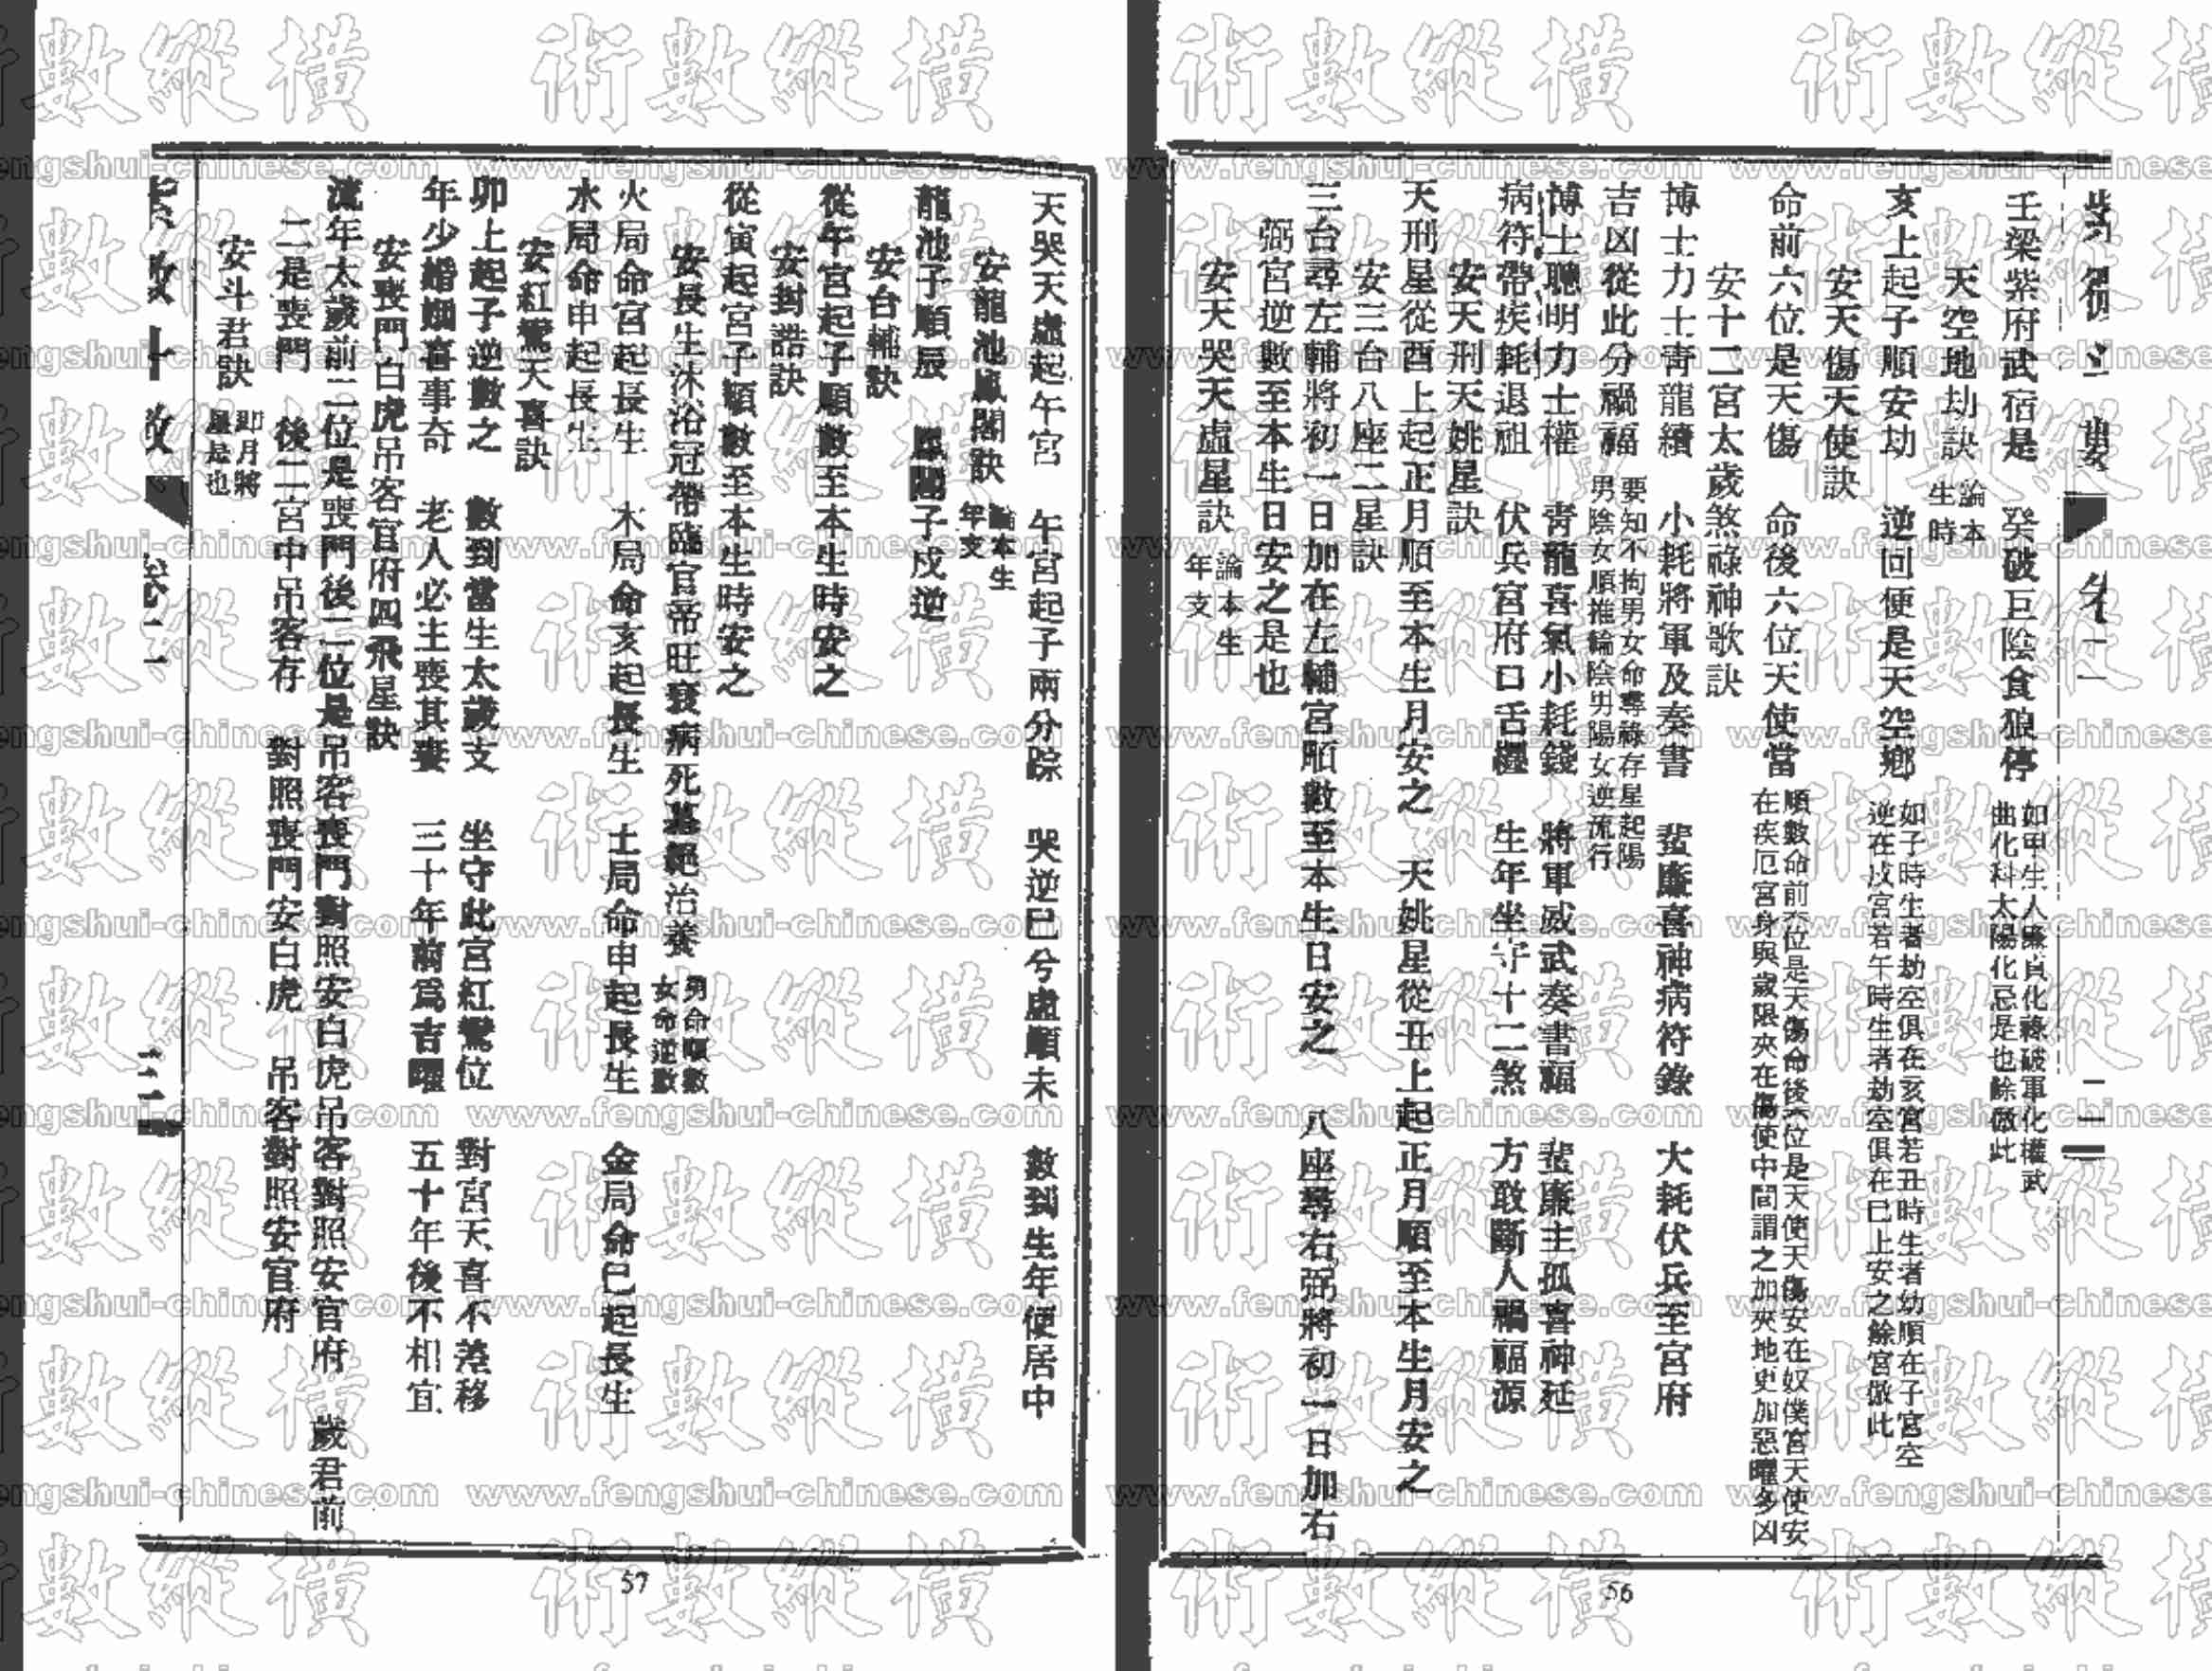 壬梁紫府武宿是　癸破巨陰貪狼停
如甲生人廉貞化祿破軍化權武
曲化科太陽化忌是也餘倣此
天空地劫訣
論本
生時
亥上起子順安劫　逆回便是天空鄉
如子時生者劫空俱在亥宮若丑時生者劫順在子宮空
逆在戌宮若午時生者劫空俱在巳上安之餘宮倣此
安天傷天使訣
命前六位是天傷　命後六位天使當
順數命前六位是天傷命後六位是天使天傷安在奴僕宮天使安
在疾厄宮身與歲限夾在傷使中間謂之加夾地更加惡曜多凶
安十二宮太歲煞祿神歌訣
博士力士青龍續　小耗將軍及奏書　蜚廉喜神病符錄　大耗伏兵至官府
吉凶從此分禍福
要知不拘男女命尋祿存星起陽
男陰女順推輪陰男陽女逆流行
博士聰明力士權　青龍喜氣小耗錢　將軍威武奏書福　蜚廉主孤喜神延
病符帶疾耗退祖　伏兵官府口舌纏　生年坐守十二煞　方敢斷人禍福源
安天刑天姚星訣
天刑星從酉上起正月順至本生月安之　天姚星從丑上起正月順至本生月安之
安三台八座二星訣
三台尋左輔將初一日加在左輔宮順數至本生日安之　八座尋右弼將初一日加右
弼宮逆數至本生日安之是也
安天哭天虛星訣
論本生
年支
56
天哭天虛起午宮　午宮起子兩分踪　哭逆巳兮虛順未　數到生年便居中
安龍池鳳閣訣
論本生
年支
龍池子順辰　鳳閣子戌逆
安台輔訣
從午宮起子順數至本生時安之
安封誥訣
從寅起宮子順數至本生時安之
安長生沐浴冠帶臨官帝旺衰病死墓絕治養
男命順數
女命逆數
火局命宮起長生　木局命亥起長生　土局命申起長生　金局命巳起長生
水局命申起長生
安紅鸞天喜訣
卯上起子逆數之　數到當生太歲支　坐守此宮紅鸞位　對宮天喜不差移
年少婚姻喜事奇　老人必主喪其妻　三十年前為吉曜　五十年後不相宜
安喪門白虎吊客官府四飛星訣
流年太歲前二位是喪門後二位是吊客喪門對照安白虎吊客對照安官府　歲君前
二是喪門　後二宮中吊客存　對照喪門安白虎　吊客對照安官府
安斗君訣
即月將
星是也
57
卷二